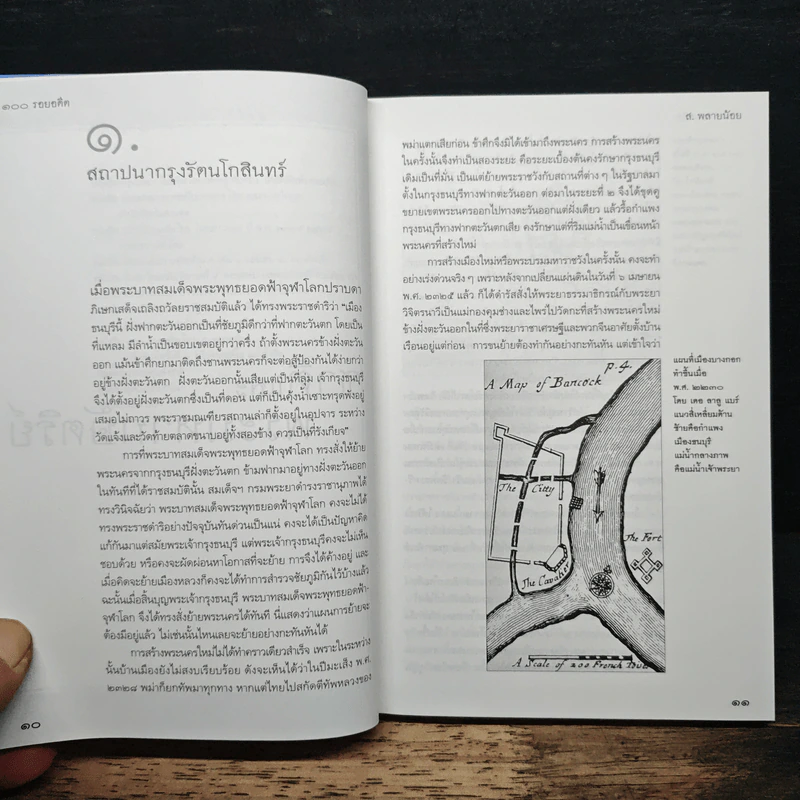 ๑๐๐ รอยอดีต
๑.
สถาปนากรุงรัตนโกสินทร์
เมื่อพระบาทสมเด็จพระพุทธยอดฟ้าจุฬาโลกปราบดา
ภิเษกเสด็จเถลิงถวัลยราชสมบัติแล้ว ได้ทรงพระราชดำริว่า “เมือง
ธนบุรีนี้ ฝั่งฟากตะวันออกเป็นที่ชัยภูมิดีกว่าที่ฟากตะวันตก โดยเป็น
ที่แหลม มีลำน้ำเป็นขอบเขตอยู่กว่าครึ่ง ถ้าตั้งพระนครข้างฝั่งตะวัน
ออก แม้นข้าศึกยกมาติดถึงชานพระนครก็จะต่อสู้ป้องกันได้ง่ายกว่า
อยู่ข้างฝั่งตะวันตก ฝั่งตะวันออกนั้นเสียแต่เป็นที่ลุ่ม เจ้ากรุงธนบุรี
จึงได้ตั้งอยู่ฝั่งตะวันตกซึ่งเป็นที่ดอน แต่ก็เป็นคุ้งน้ำเซาะทรุดพังอยู่
เสมอไม่ถาวร พระราชมณเฑียรสถานเล่าก็ตั้งอยู่ในอุปจาร ระหว่าง
วัดแจ้งและวัดท้ายตลาดขนาบอยู่ทั้งสองข้าง ควรเป็นที่รังเกียจ”
การที่พระบาทสมเด็จพระพุทธยอดฟ้าจุฬาโลก ทรงสั่งให้ย้าย
พระนครจากกรุงธนบุรีฝั่งตะวันตก ข้ามฟากมาอยู่ทางฝั่งตะวันออก
ในทันทีที่ได้ราชสมบัตินั้น สมเด็จฯ กรมพระยาดำรงราชานุภาพได้
ทรงวินิจฉัยว่า พระบาทสมเด็จพระพุทธยอดฟ้าจุฬาโลก คงจะไม่ได้
ทรงพระราชดำริอย่างปัจจุบันทันด่วนเป็นแน่ คงจะได้เป็นปัญหาคิด
แก้กันมาแต่สมัยพระเจ้ากรุงธนบุรี แต่พระเจ้ากรุงธนบุรีคงจะไม่เห็น
ชอบด้วย หรือคงจะผัดผ่อนหาโอกาสที่จะย้าย การจึงได้ค้างอยู่ และ
เมื่อคิดจะย้ายเมืองหลวงก็คงจะได้ทำการสำรวจชัยภูมิกันไว้บ้างแล้ว
ฉะนั้นเมื่อสิ้นบุญพระเจ้ากรุงธนบุรี พระบาทสมเด็จพระพุทธยอดฟ้า-
จุฬาโลก จึงได้ทรงสั่งย้ายพระนครได้ทันที นี่แสดงว่าแผนการย้ายจะ
ต้องมีอยู่แล้ว ไม่เช่นนั้นไหนเลยจะย้ายอย่างกะทันหันได้
การสร้างพระนครใหม่ไม่ได้ทำคราวเดียวสำเร็จ เพราะในระหว่าง
นั้นบ้านเมืองยังไม่สงบเรียบร้อย ดังจะเห็นได้ว่าในปีมะเส็ง พ.ศ.
๒๓๒๘ พม่าก็ยกทัพมาทุกทาง หากแต่ไทยไปสกัดตีทัพหลวงของ
๑๐
ส. พลายน้อย
พม่าแตกเสียก่อน ข้าศึกจึงมิได้เข้ามาถึงพระนคร การสร้างพระนคร
ในครั้งนั้นจึงทำเป็นสองระยะ คือระยะเบื้องต้นคงรักษากรุงธนบุรี
เดิมเป็นที่มั่น เป็นแต่ย้ายพระราชวังกับสถานที่ต่าง ๆ ในรัฐบาลมา
ตั้งในกรุงธนบุรีทางฟากตะวันออก ต่อมาในระยะที่ ๒ จึงได้ขุดคู
ขยายเขตพระนครออกไปทางตะวันออกแต่ฝั่งเดียว แล้วรื้อกำแพง
กรุงธนบุรีทางฟากตะวันตกเสีย คงรักษาแต่ที่ริมแม่น้ำเป็นเขื่อนหน้า
พระนครที่สร้างใหม่
การสร้างเมืองใหม่หรือพระบรมมหาราชวังในครั้งนั้น คงจะทำ
อย่างเร่งด่วนจริง ๆ เพราะหลังจากเปลี่ยนแผ่นดินในวันที่ ๖ เมษายน
พ.ศ. ๒๓๒๕ แล้ว ก็ได้ดำรัสสั่งให้พระยาธรรมาธิกรณ์กับพระยา
วิจิตรนาวีเป็นแม่กองคุมช่างและไพร่ไปวัดกะที่สร้างพระนครใหม่
ข้างฝั่งตะวันออกในที่ซึ่งพระยาราชาเศรษฐีและพวกจีนอาศัยตั้งบ้าน
เรือนอยู่แต่ก่อน การขนย้ายต้องทำกันอย่างกะทันหัน แต่เข้าใจว่า
p. 4.
A Map of Bancock
The Citty
The Fort
The Cavalier
A Scale of 200 French Toises
แผนที่เมืองบางกอก
ทำขึ้นเมื่อ
พ.ศ. ๒๒๓๐
โดย เดอ ลาลู แบร์
แนวสี่เหลี่ยมด้าน
ซ้ายคือกำแพง
เมืองธนบุรี
แม่น้ำกลางภาพ
คือแม่น้ำเจ้าพระยา
๑๑